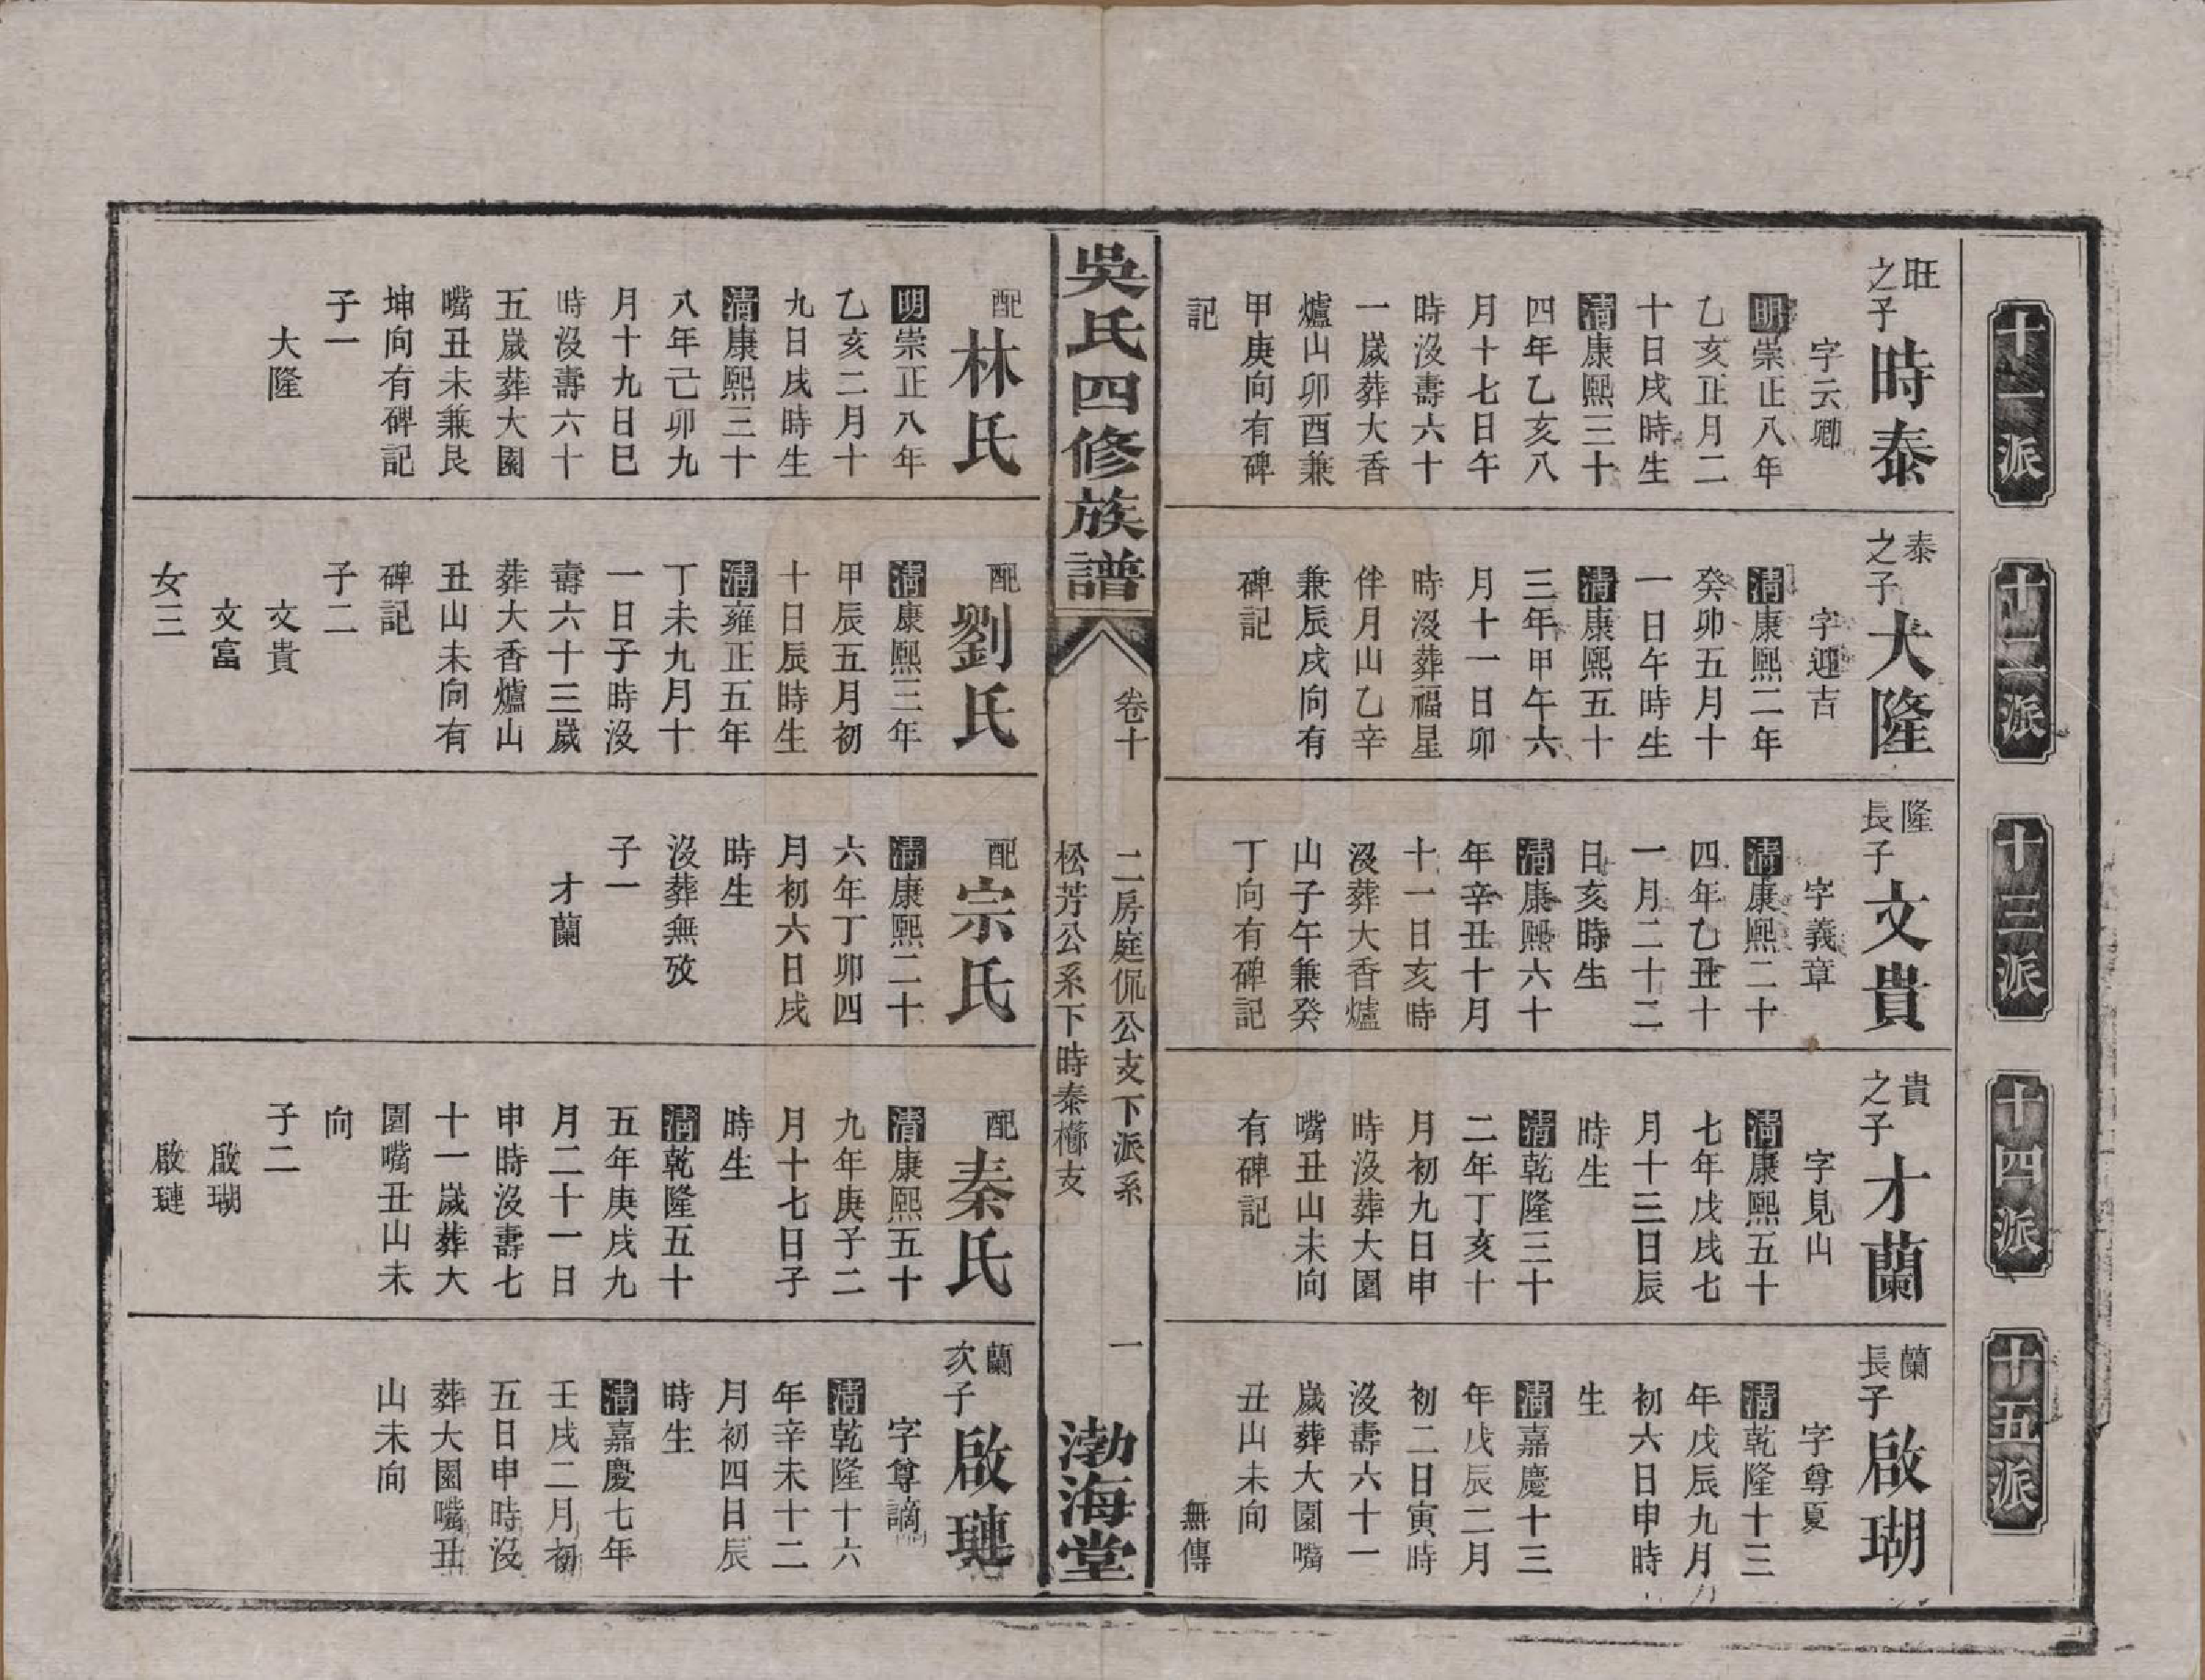 十一派
旺之子
時泰
字云卿
明崇正八年
乙亥正月二
十日戌時生
清康熙三十
四年乙亥八
月十七日午
時沒壽六十
一歲葬大香
爐山卯酉兼
甲庚向有碑
記
配
林氏
明崇正八年
乙亥二月十
九日戌時生
清康熙三十
八年己卯九
月十九日巳
時沒壽六十
五歲葬大園
嘴丑未兼艮
坤向有碑記
子一
大隆
十二派
泰之子
大隆
字迎吉
清康熙二年
癸卯五月十
一日午時生
清康熙五十
三年甲午六
月十一日卯
時沒葬福星
伴月山乙辛
兼辰戌向有
碑記
配
劉氏
清康熙三年
甲辰五月初
十日辰時生
清雍正五年
丁未九月十
一日子時沒
壽六十三歲
葬大香爐山
丑山未向有
碑記
子二
文貴
文富
女三
十三派
隆長子
文貴
字義章
清康熙二十
四年乙丑十
一月二十二
日亥時生
清康熙六十
年辛丑十月
十一日亥時
沒葬大香爐
山子午兼癸
丁向有碑記
配
宗氏
清康熙二十
六年丁卯四
月初六日戌
時生
沒葬無攷
子一
才蘭
十四派
貴之子
才蘭
字見山
清康熙五十
七年戊戌七
月十三日辰
時生
清乾隆三十
二年丁亥十
月初九日申
時沒葬大園
嘴丑山未向
有碑記
配
秦氏
清康熙五十
九年庚子二
月十七日子
時生
清乾隆五十
五年庚戌九
月二十一日
申時沒壽七
十一歲葬大
園嘴丑山未
向
子二
啟瑚
啟璉
十五派
蘭長子
啟瑚
字尊夏
清乾隆十三
年戊辰九月
初六日申時
生
清嘉慶十三
年戊辰二月
初二日寅時
沒壽六十一
歲葬大園嘴
丑山未向
無傳
蘭次子
啟璉
字尊謫
清乾隆十六
年辛未十二
月初四日辰
時生
清嘉慶七年
壬戌二月初
五日申時沒
葬大園嘴丑
山未向
吳氏四修族譜
卷十
二房庭侃公支下派系
松芳公系下時泰支
一
渤海堂